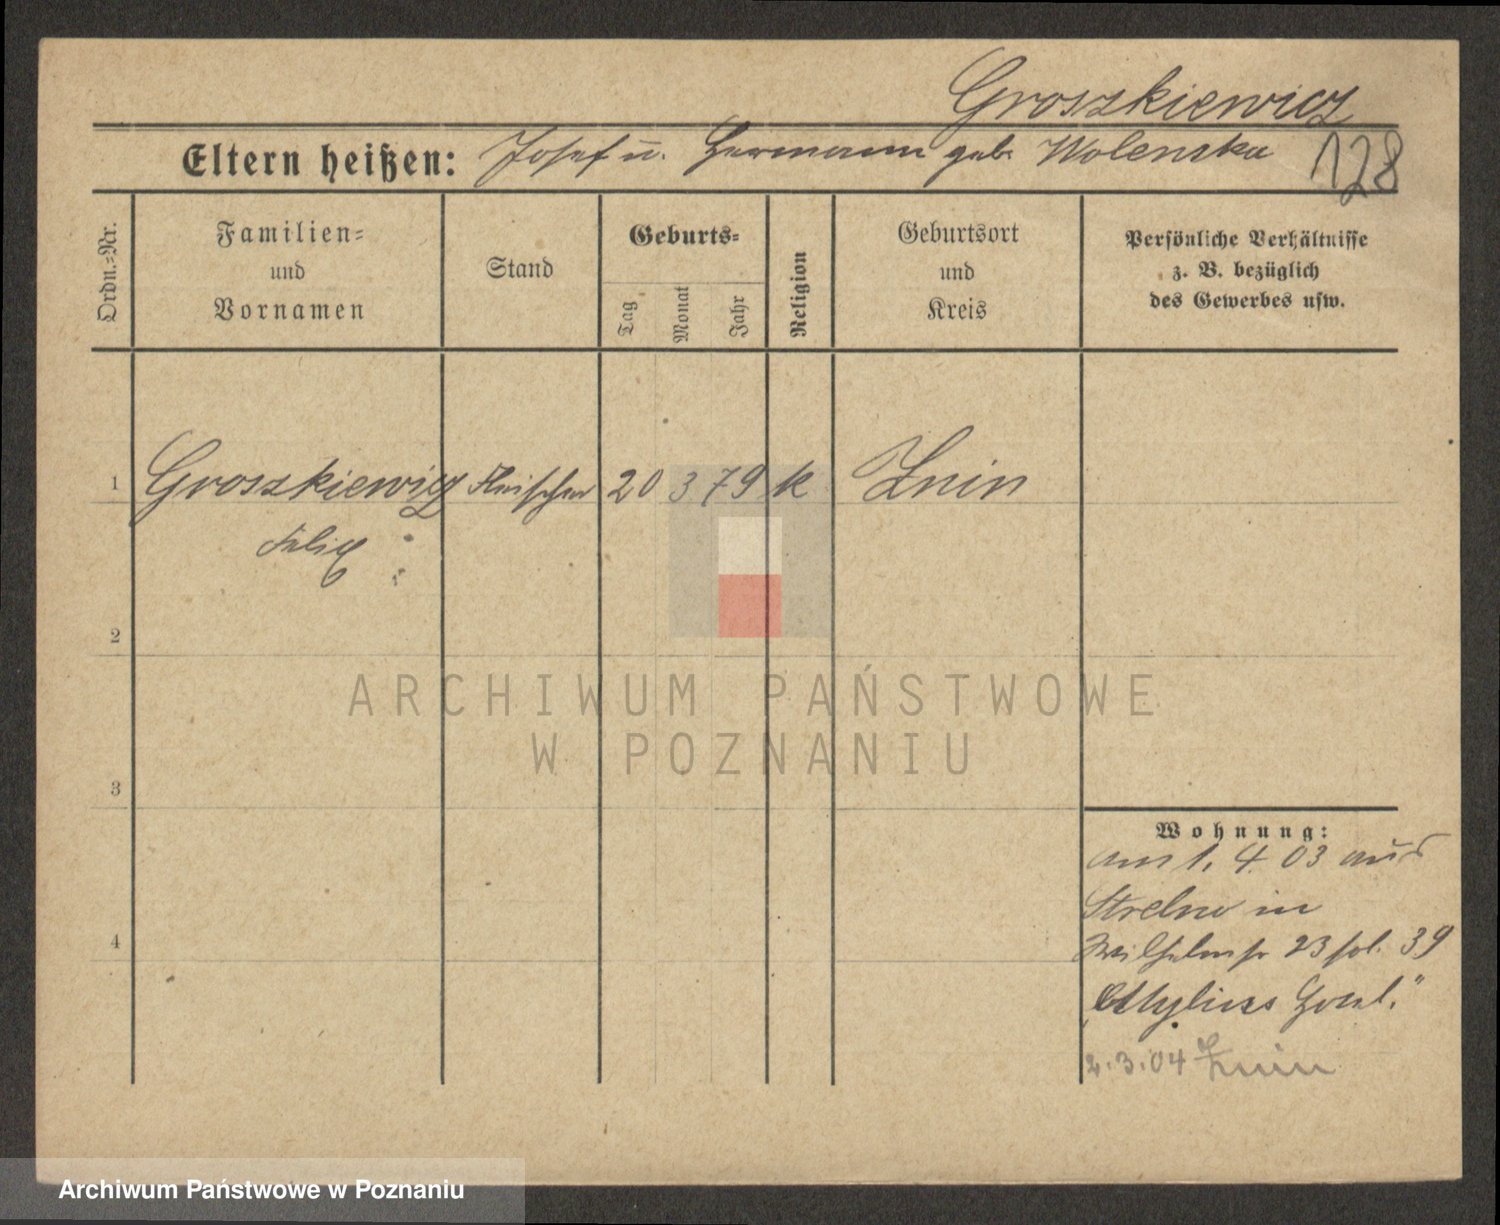 Groszkiewicz
Eltern heißen: Josef u. Hermann geb. Wolenska
128
Ordn.-Nr.
Familien-
und
Vornamen
Stand
Geburts-
Tag
Monat
Jahr
Religion
Geburtsort
und
Kreis
Persönliche Verhältnisse
z. B. bezüglich
des Gewerbes usw.
1 Groszkiewicz Fleischer 20 3 79 k Znin
Felix
2
3
4
Wohnung:
am 1. 4. 03 aus
Strelno in
Wilhelmstr 23 fol. 39
"Mylius Hotel."
2.3.04 Znin
ARCHIWUM PAŃSTWOWE
W POZNANIU
Archiwum Państwowe w Poznaniu